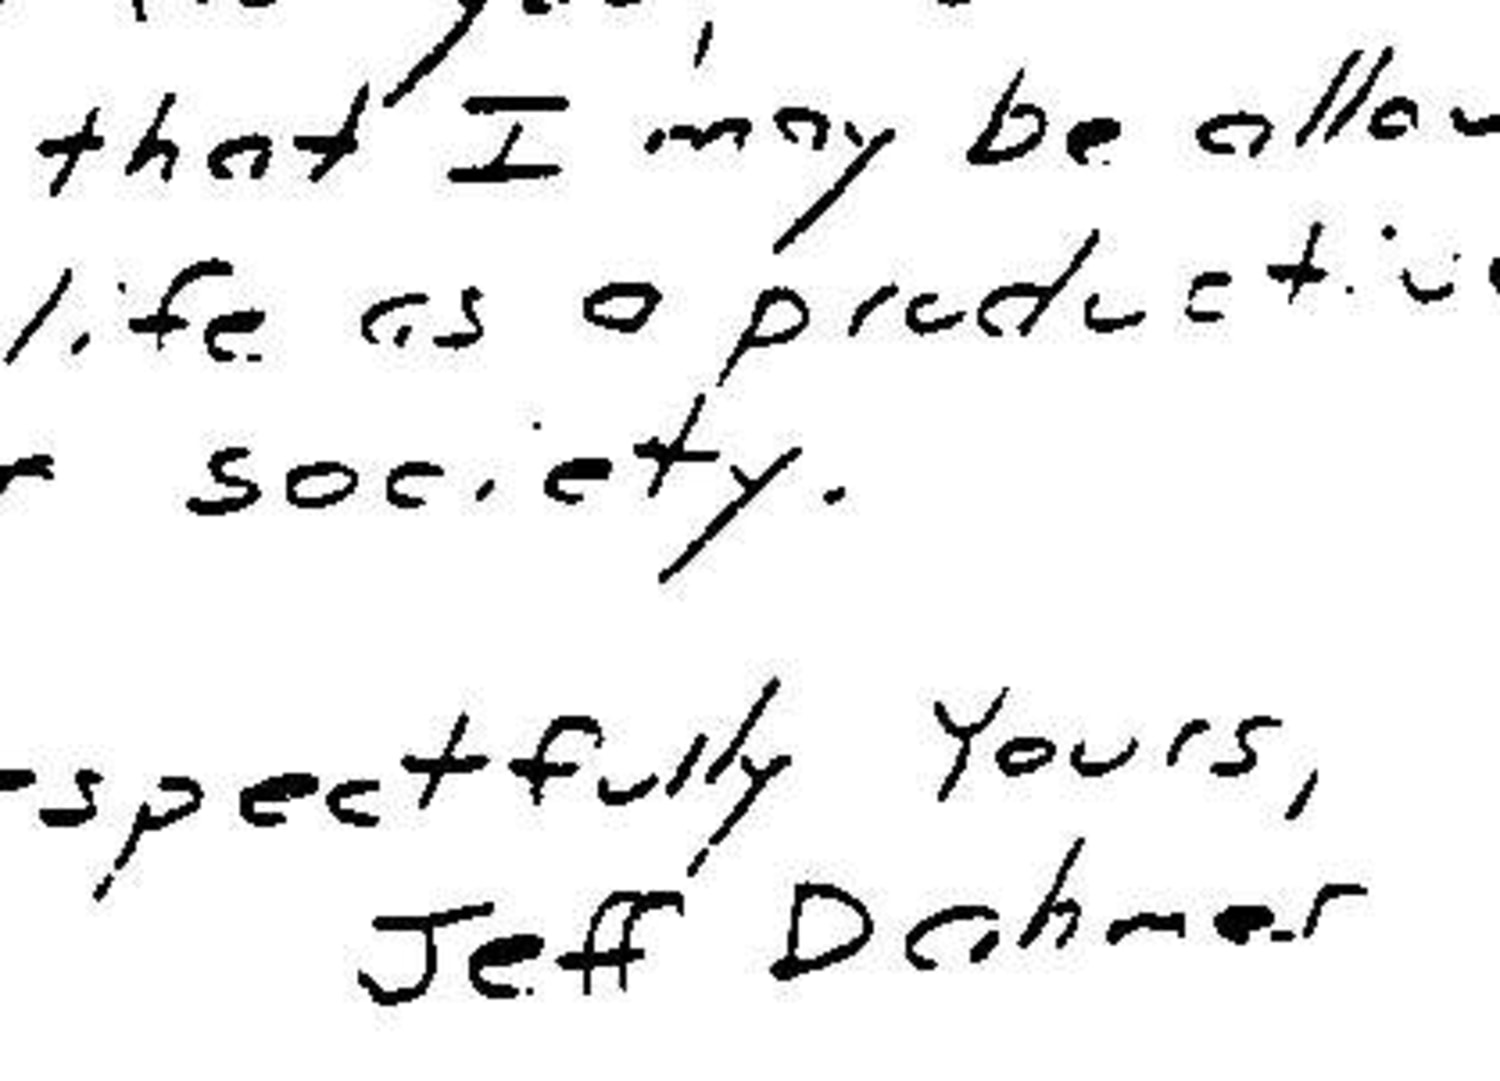 that I may be allow
life as a productive
r society.
espectfully Yours,
Jeff Dahmer